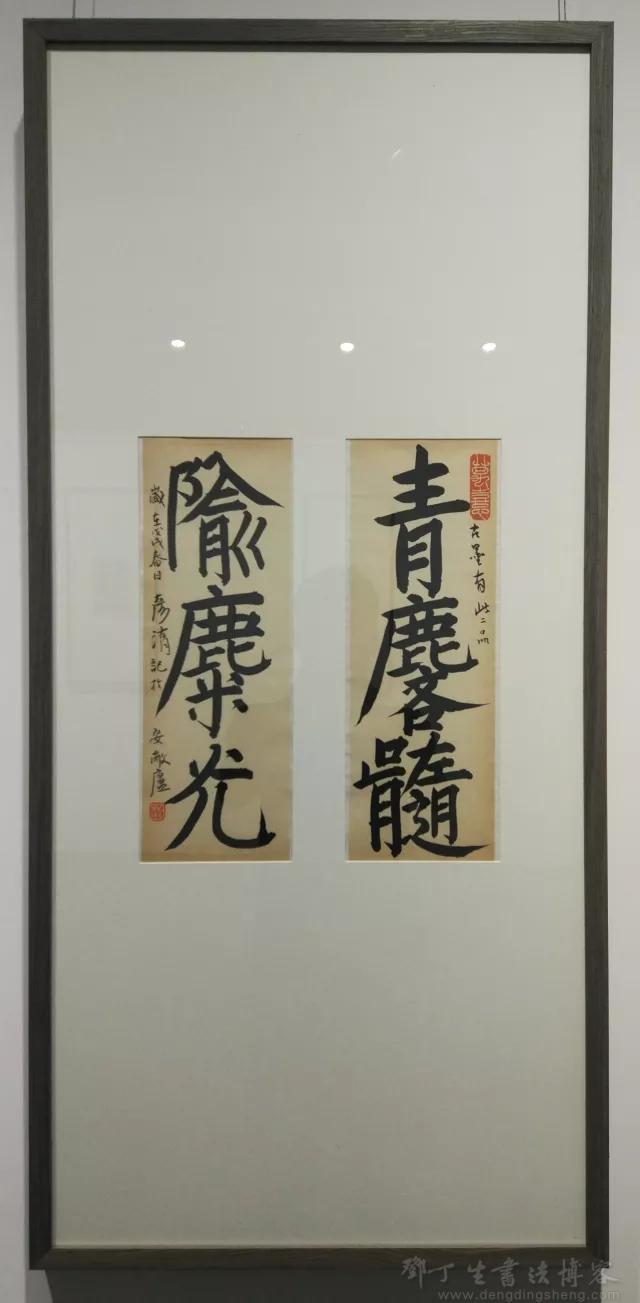 古墨有此二品
青麐髓
隃麋光
歲在戊戌春日彥清記於
鄧丁生書法博客
www.dengdingsheng.com